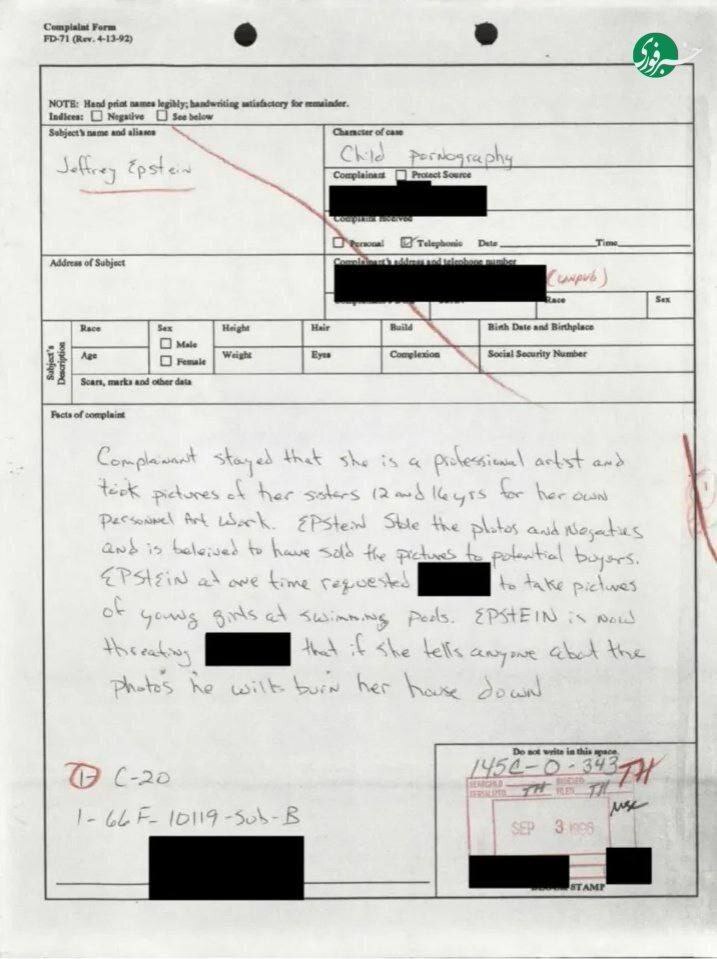 Complaint Form
FD-71 (Rev. 4-13-92)
خبرفوری
NOTE: Hand print names legibly; handwriting satisfactory for remainder.
Indices: Negative See below
Subject's name and aliases
Jeffrey Epstein
Character of case
Child Pornography
Complainant Protect Source
Complaint received
Personal Telephonic Date Time
Address of Subject
Complainant's address and telephone number
(UNPUB)
Race Sex
Subject's Description
Race Sex Height Hair Build Birth Date and Birthplace
Male
Age Female Weight Eyes Complexion Social Security Number
Scars, marks and other data
Facts of complaint
Complainant stayed that she is a professional artist and
took pictures of her sisters 12 and 16 yrs for her own
Personnel Art Work. EPStein Stole the photos and Negatives
and is beleived to have sold the pictures to potential buyers.
EPSTEIN at one time requested to take pictures
of young girls at swimming pools. EPSTEIN is now
threating that if she tells anyone about the
photos he will burn her house down
1- C-20
1- 66F-10119-Sub-B
Do not write in this space.
145C-0-343
TH
SEARCHED INDEXED
SERIALIZED TH FILED TH
SEP 3 1996
STAMP